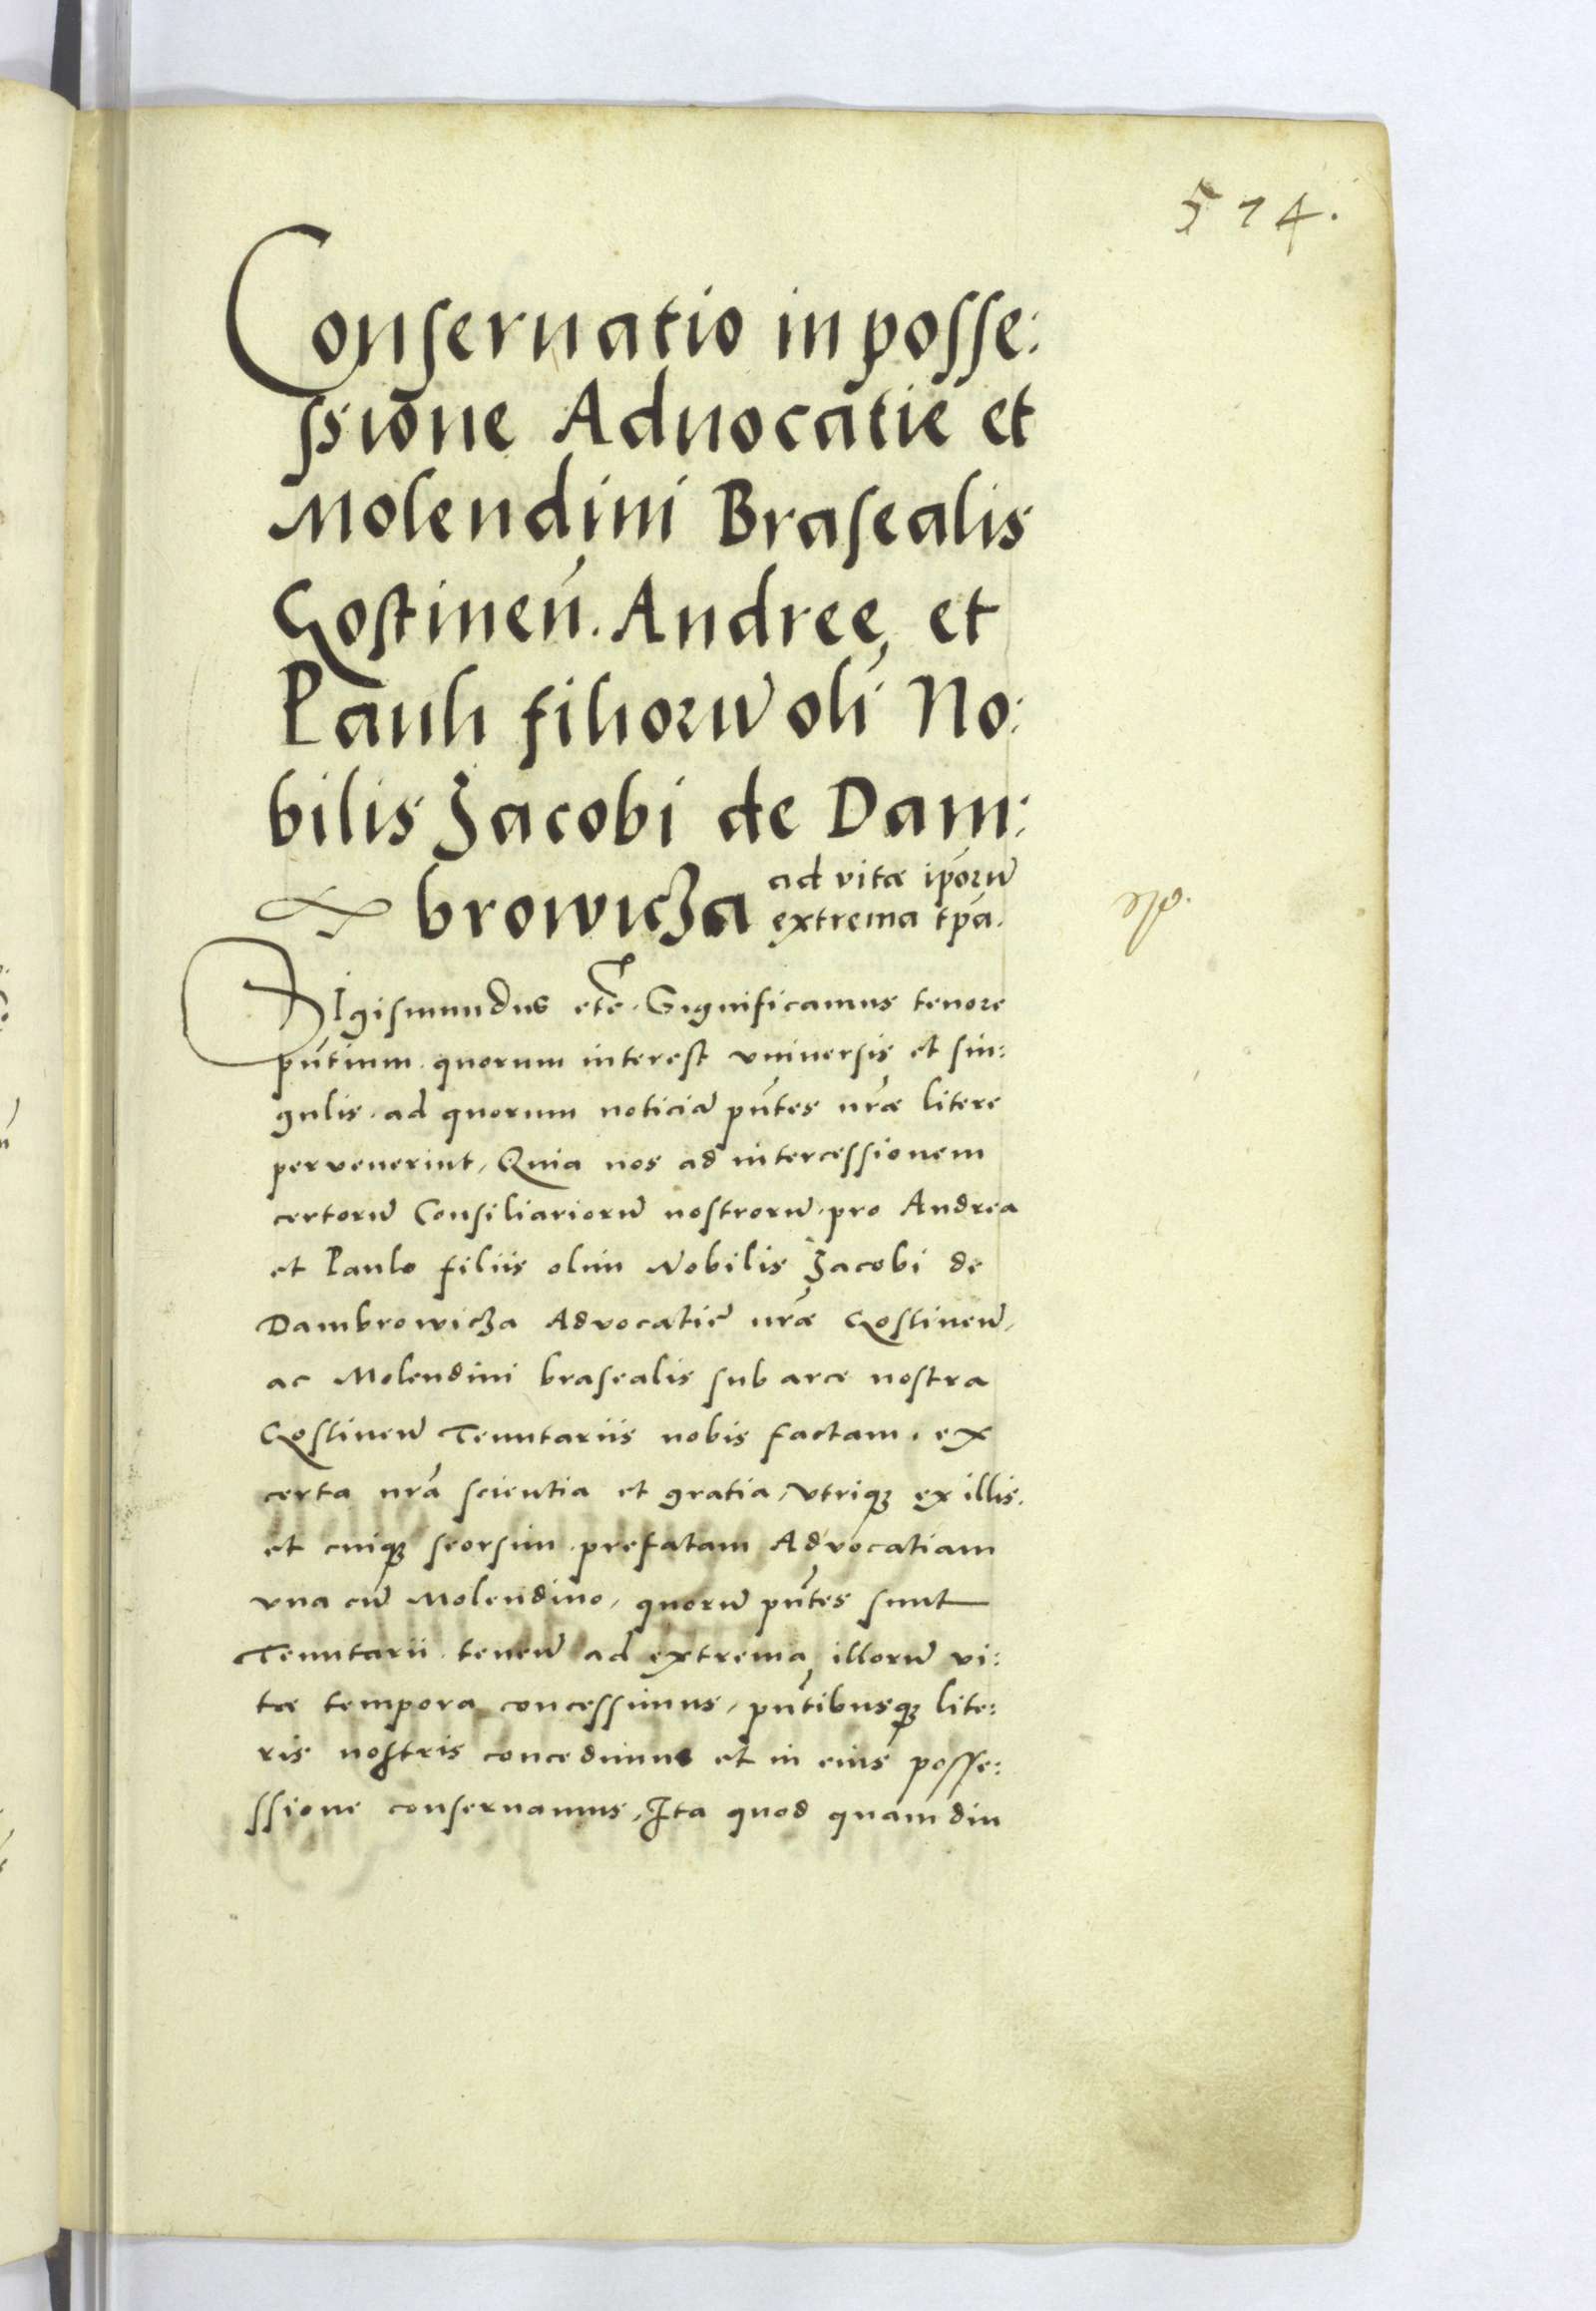 574.
Conseruatio in posse:
ssione Aduocatie et
Molendini Brasealis
Gostinen̄. Andreę et
Pauli filiorū oli͞ No:
bilis Jacobi de Dam:
browicza ad vitæ ip̄orū
extrema tp̄a.
Sigismundus etc̄. Significamus tenore
pn̄tium. quorum interest vniuersis et sin:
gulis. ad quorum noticiā pn̄tes nr̄æ litere
pervenerint, Quia nos ad intercessionem
certorū Consiliariorū nostrorū. pro Andrea
et Paulo filiis olim Nobilis Jacobi de
Dambrowicza Advocatiē nr̄æ Gostinen̄,
ac Molendini brasealis sub arce nostra
Gostinen̄ Tenutariis nobis factam. ex
certa nr̄a scientia et gratia, vtriqꝫ ex illis.
et cuiqꝫ seorsim. prefatam Advocatiam
vna cū Molendino, quorū pn̄tes sunt
Tenutarii. tenen̄ ad extrema illorū vi:
tæ tempora concessimus, pn̄tibusqꝫ lite:
ris nostris concedimus et in eius posse:
ssione conseruamus, Ita quod quam diu